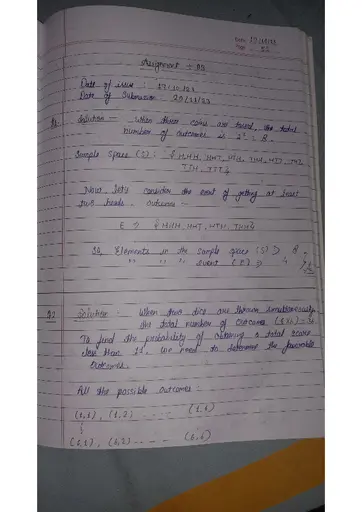 Assignment :- 02
Date of issue :
Date of Submission
Q1 Solution - When three coins are tossed, the total
number of outcomes is 2³ = 8.
Sample Space (S) : { HHH, HHT, HTH,
TTH, TTT }
Now lets consider the event of getting at least
two heads. Outcomes -
E ⇒ { HHH, HHT, HTH, THH }
So, Elements in the sample space (S) ⇒ 8
" " " event (E) ⇒ 4
Q2 Solution - When two dice are thrown simultaneously
the total number of outcomes (6x6) = 36
To find the probability of obtaining a total score
less than 11, we need to determine the favourable
outcomes.
All the possible outcomes -
(1,1), (1,2) - - - - (1,6)
(6,1), (6,2) - - - - (6,6)